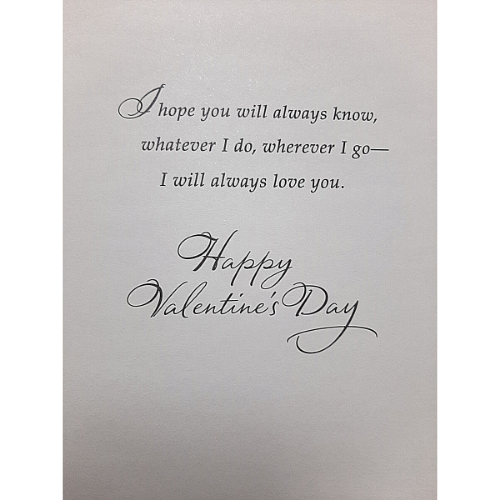 I hope you will always know,
whatever I do, wherever I go—
I will always love you.
Happy
Valentine's Day